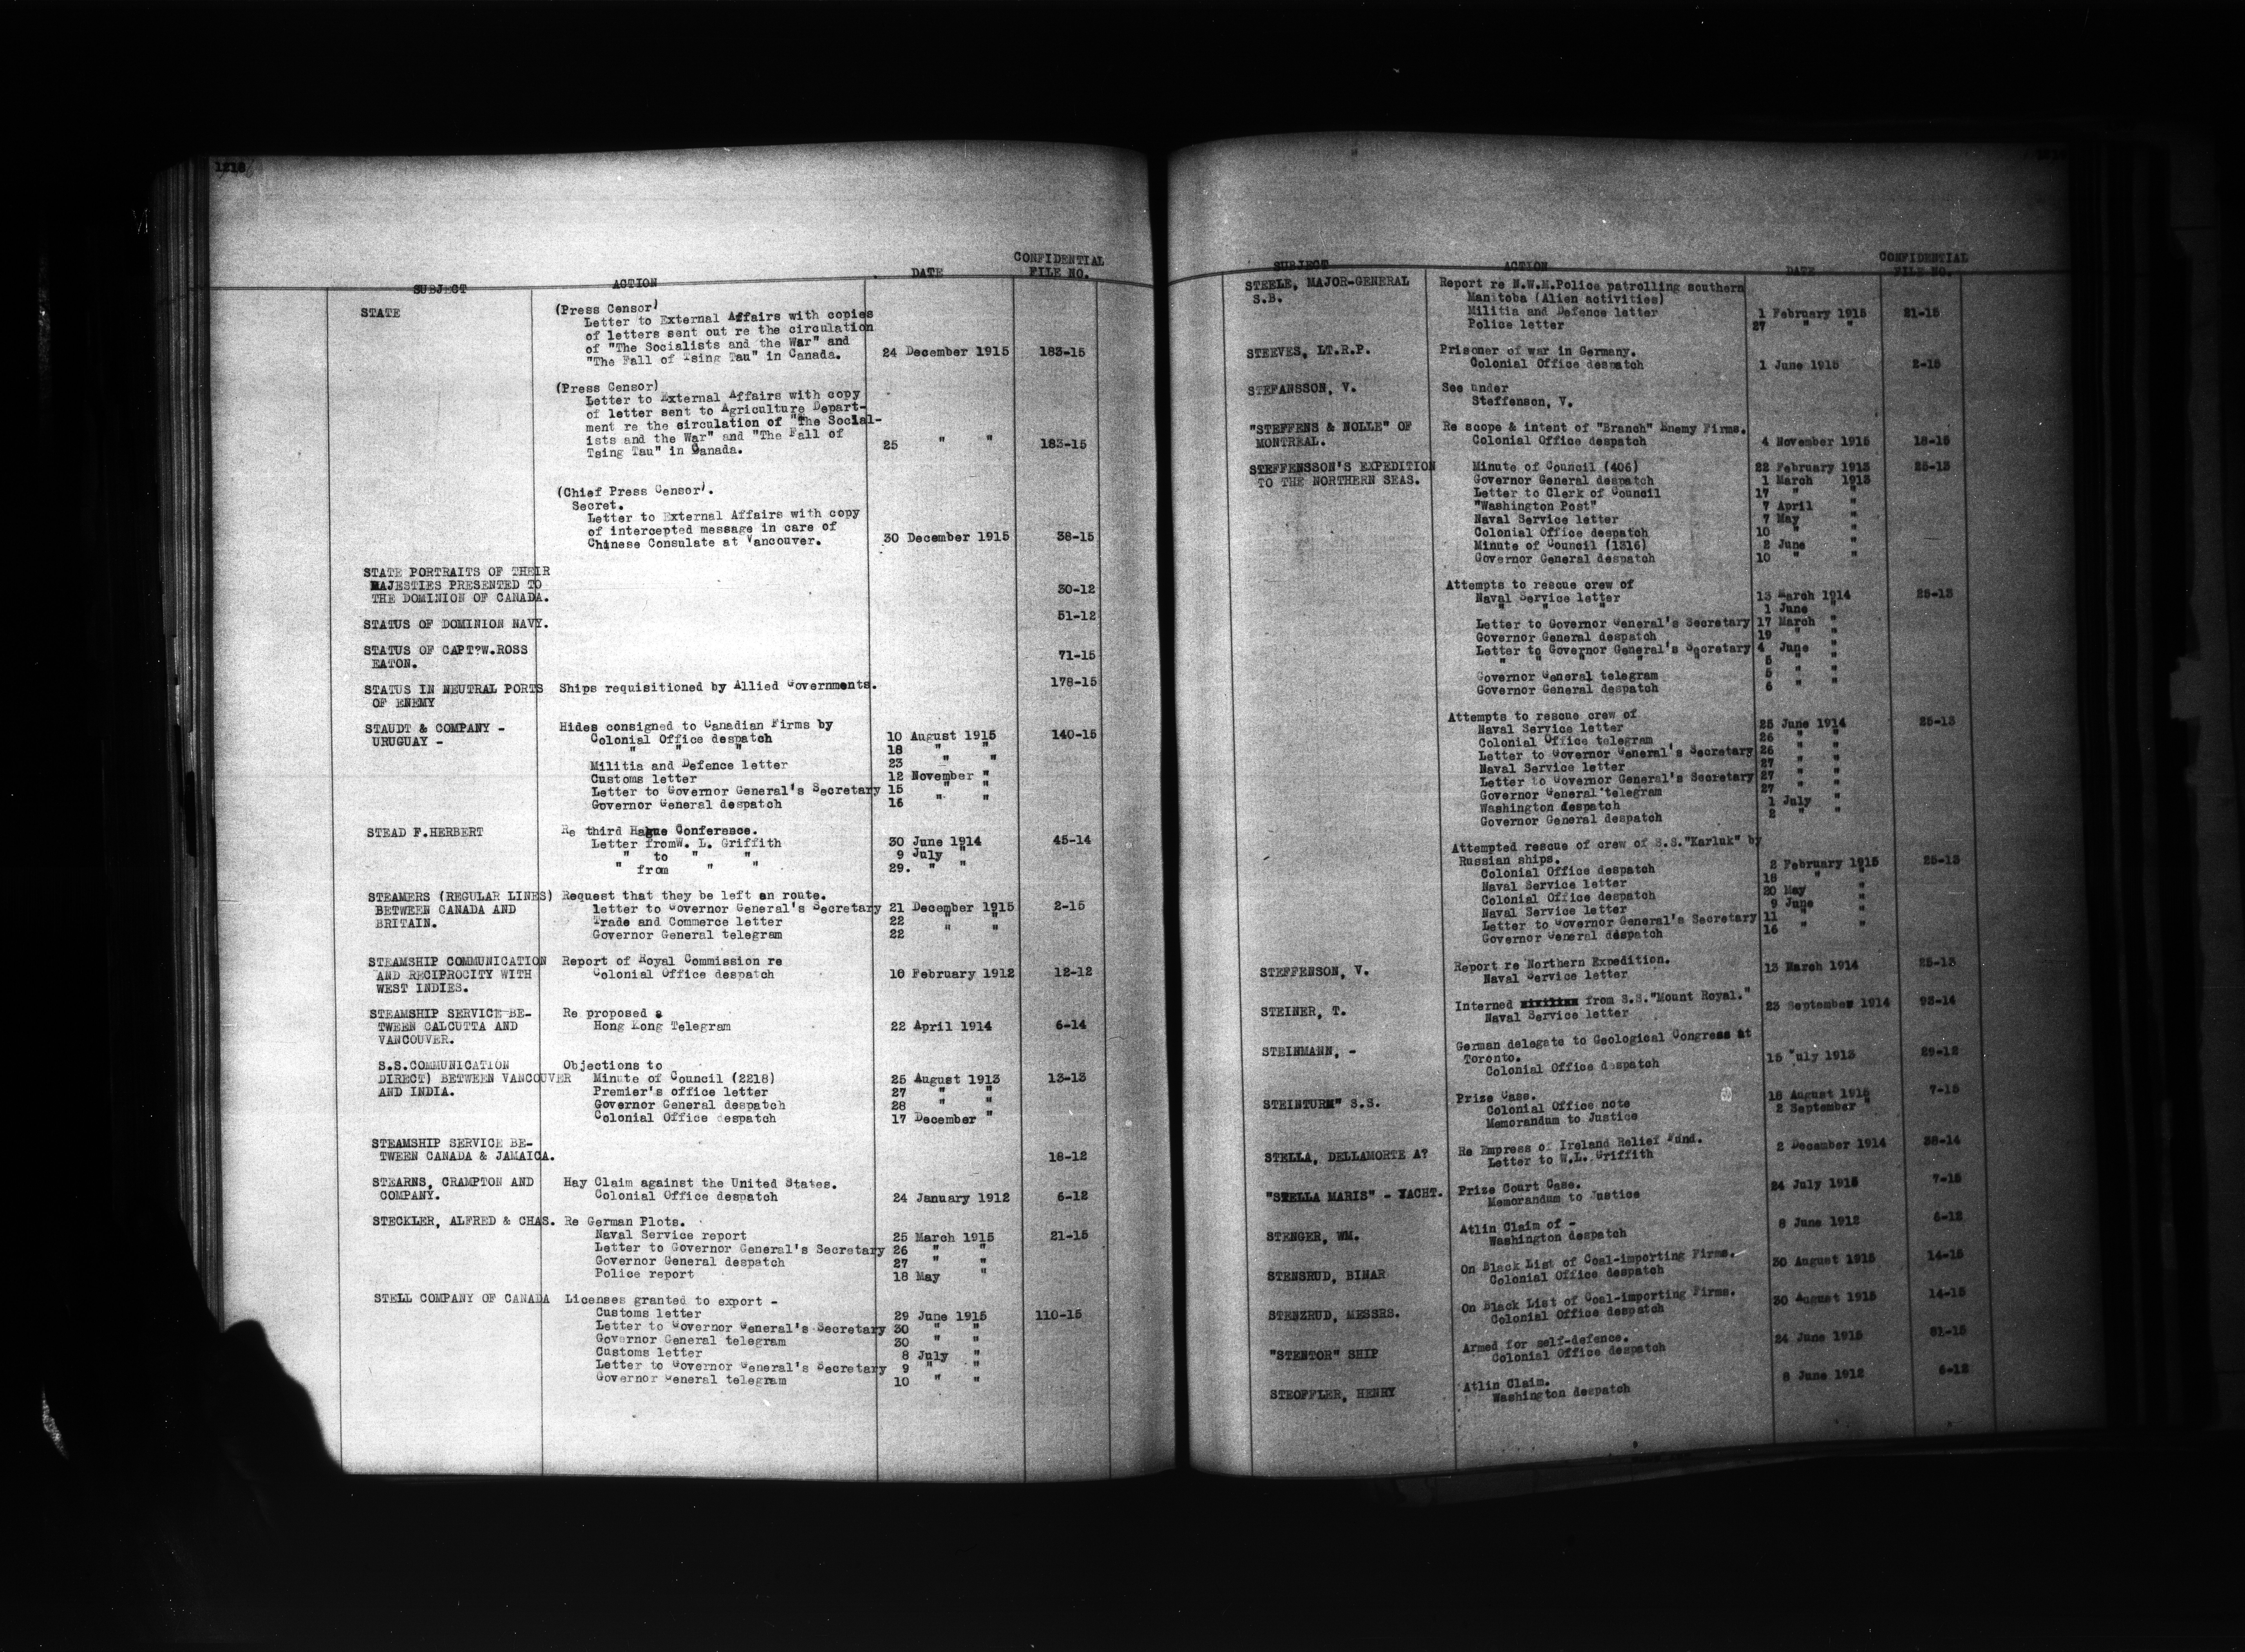 1218
SUBJECT ACTION DATE CONFIDENTIAL FILE NO.
STATE (Press Censor)
Letter to External Affairs with copies
of letters sent out re the circulation
of "The Socialists and the War" and
"The Fall of Tsing Tau" in Canada. 24 December 1915 183-15
(Press Censor)
Letter to External Affairs with copy
of letter sent to Agriculture Depart-
ment re the circulation of "The Social-
ists and the War" and "The Fall of 25 " " 183-15
Tsing Tau" in Canada.
(Chief Press Censor).
Secret.
Letter to External Affairs with copy
of intercepted message in care of
Chinese Consulate at Vancouver. 30 December 1915 38-15
STATE PORTRAITS OF THEIR
MAJESTIES PRESENTED TO 30-12
THE DOMINION OF CANADA.
STATUS OF DOMINION NAVY. 51-12
STATUS OF CAPT?W.ROSS 71-15
EATON.
STATUS IN NEUTRAL PORTS Ships requisitioned by Allied Governments. 178-15
OF ENEMY
STAUDT & COMPANY - Hides consigned to Canadian Firms by
URUGUAY - Colonial Office despatch 10 August 1915 140-15
" " " 18 " "
Militia and Defence letter 23 " "
Customs letter 12 November "
Letter to Governor General's Secretary 15 " "
Governor General despatch 16 " "
STEAD F.HERBERT Re third Hague Conference.
Letter fromW. L. Griffith 30 June 1914 45-14
" to " " 9 July "
" from " " 29. " "
STEAMERS (REGULAR LINES) Request that they be left an route.
BETWEEN CANADA AND letter to Governor General's Secretary 21 December 1915 2-15
BRITAIN. Trade and Commerce letter 22 " "
Governor General telegram 22 " "
STEAMSHIP COMMUNICATION Report of Royal Commission re
AND RECIPROCITY WITH Colonial Office despatch 10 February 1912 12-12
WEST INDIES.
STEAMSHIP SERVICE BE- Re proposed s
TWEEN CALCUTTA AND Hong Kong Telegram 22 April 1914 6-14
VANCOUVER.
S.S.COMMUNICATION Objections to
DIRECT) BETWEEN VANCOUVER Minute of Council (2218) 25 August 1913 13-13
AND INDIA. Premier's office letter 27 " "
Governor General despatch 28 " "
Colonial Office despatch 17 December "
STEAMSHIP SERVICE BE-
TWEEN CANADA & JAMAICA. 18-12
STEARNS, CRAMPTON AND Hay Claim against the United States.
COMPANY. Colonial Office despatch 24 January 1912 6-12
STECKLER, ALFRED & CHAS. Re German Plots.
Naval Service report 25 March 1915 21-15
Letter to Governor General's Secretary 26 " "
Governor General despatch 27 " "
Police report 18 May "
STELL COMPANY OF CANADA Licenses granted to export -
Customs letter 29 June 1915 110-15
Letter to Governor General's Secretary 30 " "
Governor General telegram 30 " "
Customs letter 8 July "
Letter to Governor General's Secretary 9 " "
Governor General telegram 10 " "
SUBJECT ACTION DATE CONFIDENTIAL FILE NO.
STEELE, MAJOR-GENERAL Report re N.W.M.Police patrolling southern
S.B. Manitoba (Alien activities)
Militia and Defence letter 1 February 1915 21-15
Police letter 27 " "
STEEVES, LT.R.P. Prisoner of war in Germany.
Colonial Office despatch 1 June 1915 2-15
STEFANSSON, V. See under
Steffenson, V.
"STEFFENS & NOLLE" OF Re scope & intent of "Branch" Enemy Firms.
MONTREAL. Colonial Office despatch 4 November 1915 18-15
STEFFENSSON'S EXPEDITION Minute of Council (406) 22 February 1913 25-13
TO THE NORTHERN SEAS. Governor General despatch 1 March 1913
Letter to Clerk of Council 17 " "
"Washington Post" 7 April "
Naval Service letter 7 May "
Colonial Office despatch 10 " "
Minute of Council (1316) 2 June "
Governor General despatch 10 " "
Attempts to rescue crew of
Naval Service letter 13 March 1914 25-13
" " " 1 June "
Letter to Governor General's Secretary 17 March "
Governor General despatch 19 " "
Letter to Governor General's Secretary 4 June "
" " " " " 5 " "
Governor General telegram 5 " "
Governor General despatch 6 " "
Attempts to rescue crew of
Naval Service letter 25 June 1914 25-13
Colonial Office telegram 26 " "
Letter to Governor General's Secretary 26 " "
Naval Service letter 27 " "
Letter to Governor General's Secretary 27 " "
Governor General telegram 27 " "
Washington despatch 1 July "
Governor General despatch 2 " "
Attempted rescue of crew of S.S."Karluk" by
Russian ships.
Colonial Office despatch 2 February 1915 25-13
Naval Service letter 18 " "
Colonial Office despatch 20 May "
Naval Service letter 9 June "
Letter to Governor General's Secretary 11 " "
Governor General despatch 16 " "
STEFFENSON, V. Report re Northern Expedition.
Naval Service letter 13 March 1914 25-13
STEINER, T. Interned from S.S."Mount Royal."
Naval Service letter 23 September 1914 93-14
STEINMANN, - German delegate to Geological Congress at
Toronto.
Colonial Office despatch 15 July 1913 29-12
STEINTURM" S.S. Prize Case.
Colonial Office note 18 August 1915 7-15
Memorandum to Justice 2 September "
STELLA, DELLAMORTE A? Re Empress of Ireland Relief Fund.
Letter to W.L. Griffith 2 December 1914 38-14
"STELLA MARIS" - YACHT. Prize Court Case.
Memorandum to Justice 24 July 1915 7-15
STENGER, WM. Atlin Claim of -
Washington despatch 8 June 1912 6-12
STENSRUD, BINAR On Black List of Coal-importing Firms.
Colonial Office despatch 30 August 1915 14-15
STENZRUD, MESSRS. On Black List of Coal-importing Firms.
Colonial Office despatch 30 August 1915 14-15
"STENTOR" SHIP Armed for self-defence.
Colonial Office despatch 24 June 1915 81-15
STEOFFLER, HENRY Atlin Claim.
Washington despatch 8 June 1912 6-12